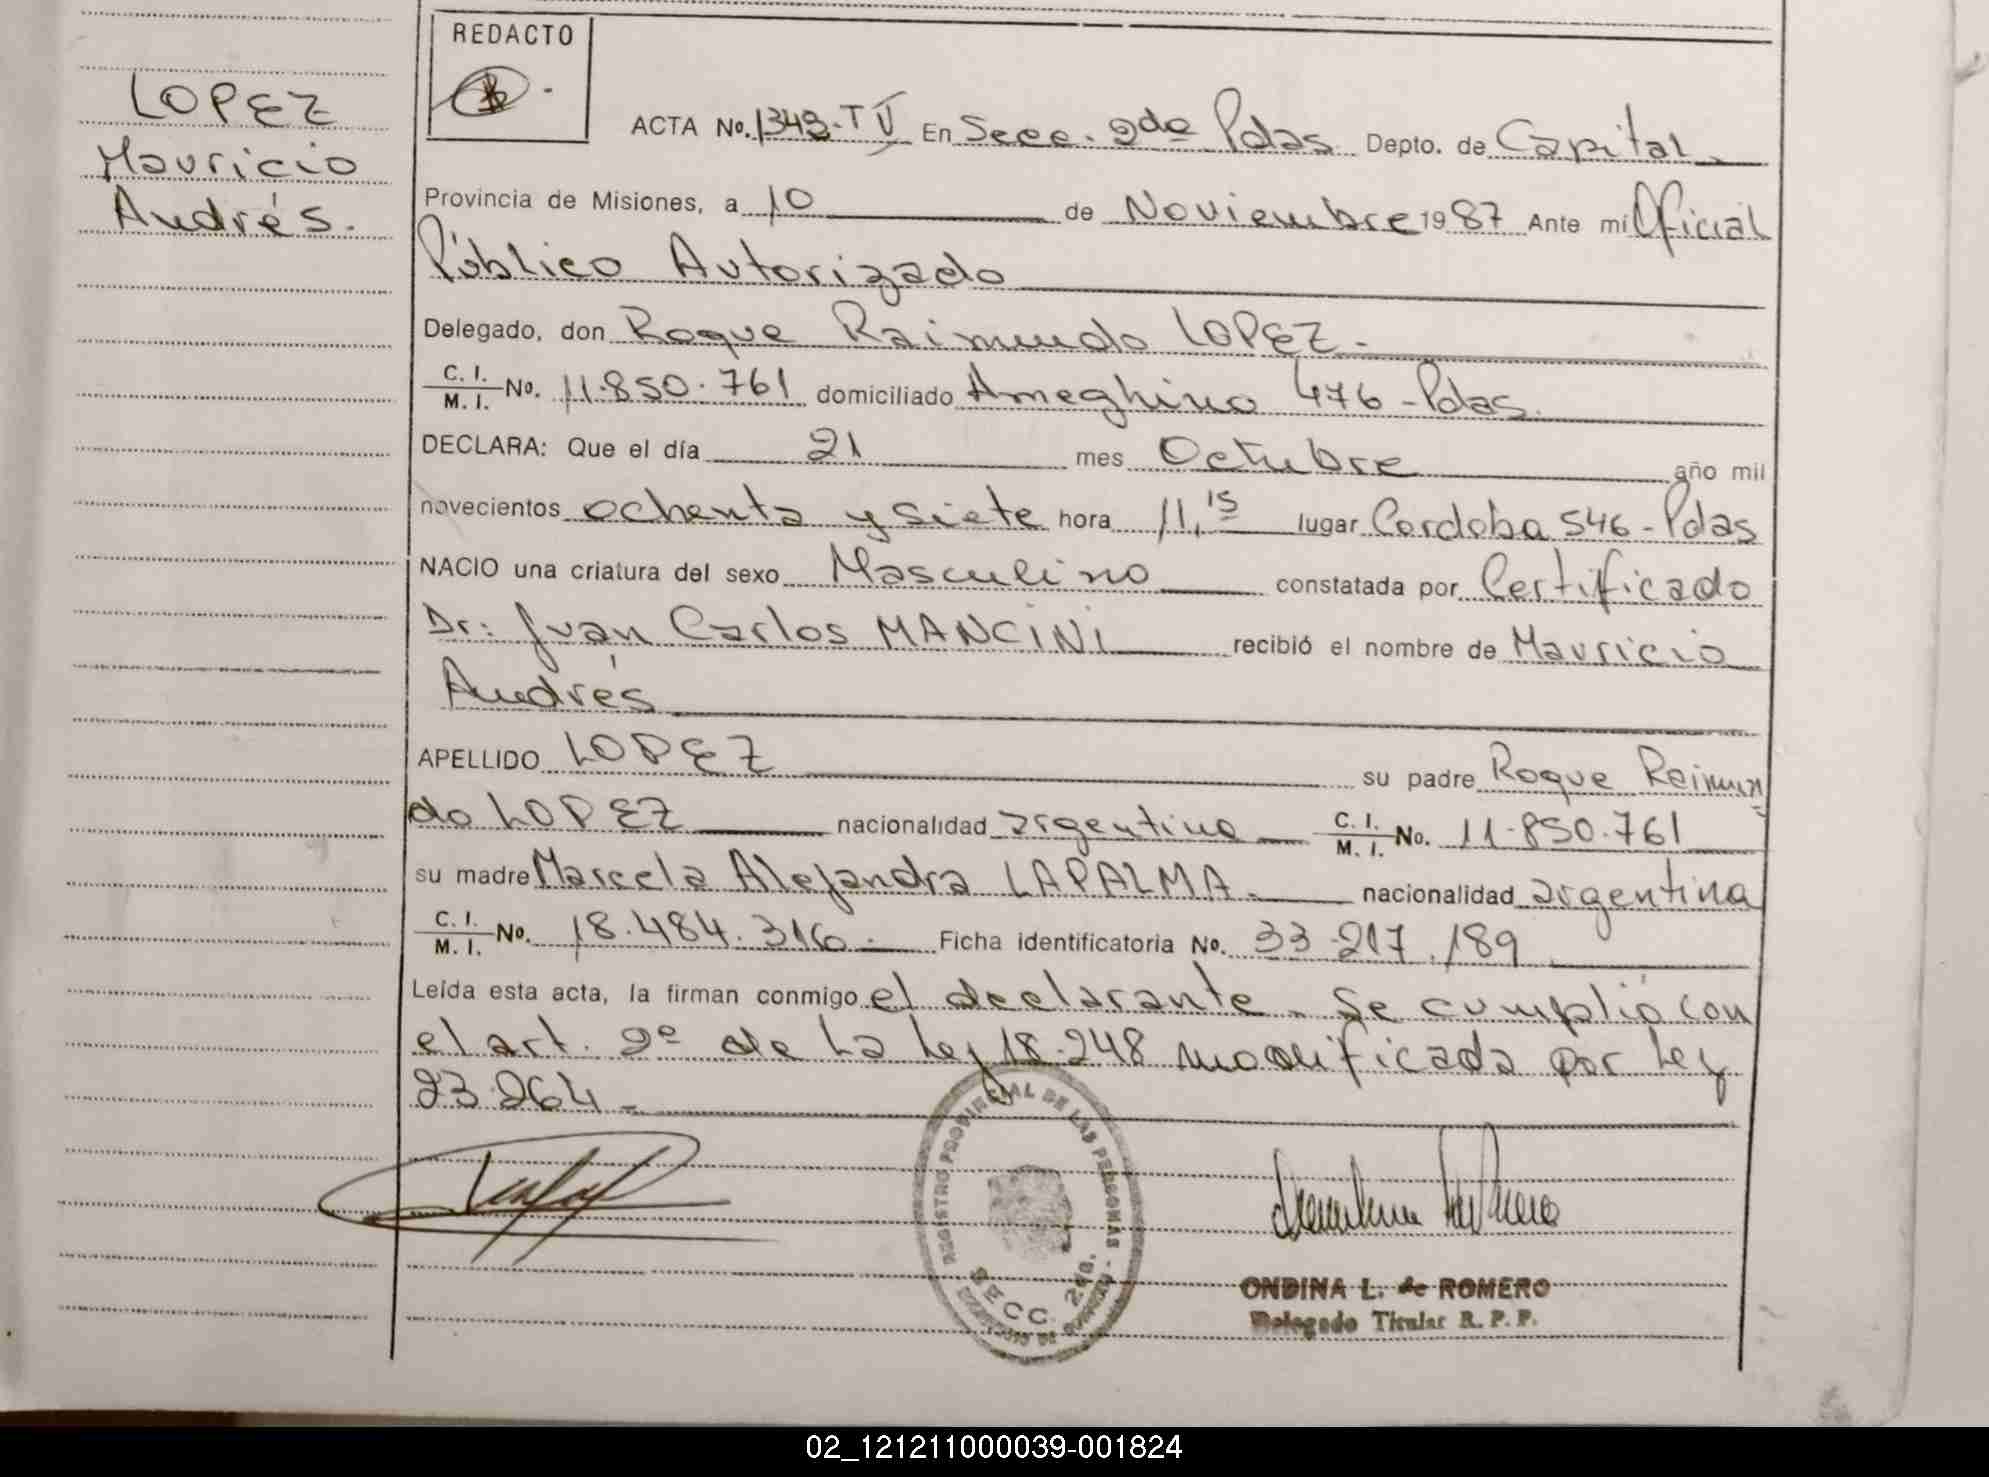 REDACTO
LOPEZ
Mauricio
Andrés.
ACTA No. 1343-T V En Secc. 2da Pdas Depto. de Capital
Provincia de Misiones, a 10 de Noviembre 1987 Ante mí Oficial
Público Autorizado
Delegado, don Roque Raimundo LOPEZ.
C. I. / M. I. No. 11.850.761 domiciliado Ameghino 476 - Pdas.
DECLARA: Que el día 21 mes Octubre año mil
novecientos ochenta y siete hora 11,15 lugar Cordoba 546 - Pdas
NACIO una criatura del sexo Masculino constatada por Certificado
Dr: Juan Carlos MANCINI recibió el nombre de Mauricio
Andrés
APELLIDO LOPEZ su padre Roque Raimun
do LOPEZ nacionalidad argentina C. I. / M. I. No. 11.850.761
su madre Marcela Alejandra LAPALMA. nacionalidad argentina
C. I. / M. I. No. 18.484.316. Ficha identificatoria No. 33.217.189
Leída esta acta, la firman conmigo el declarante. Se cumplió con
el art. 2º de la ley 18.248 modificada por ley
23.264.-
REGISTRO PROVINCIAL DE LAS PERSONAS
SECC. 2da.
ONDINA L. de ROMERO
Delegado Titular R. P. P.
02_121211000039-001824